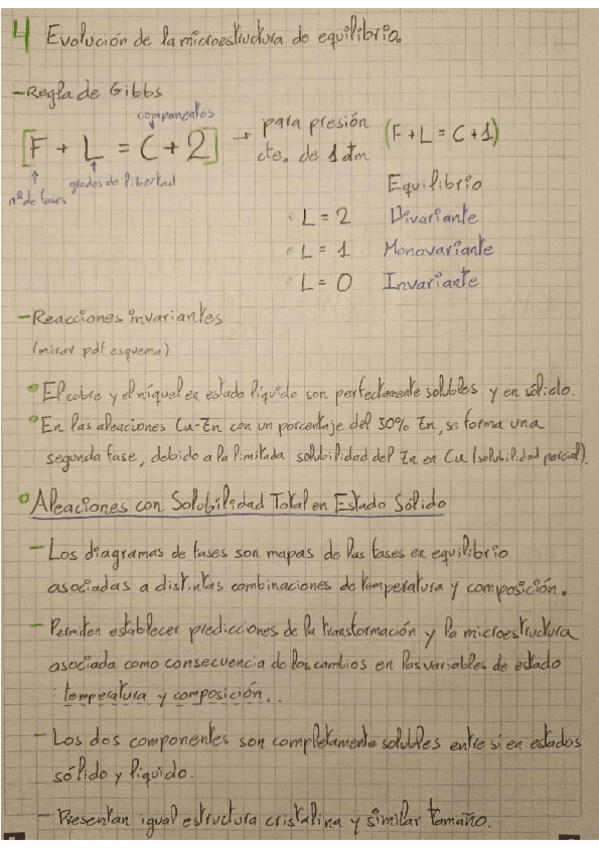 4 Evolución de la microestructura de equilibrio.
- Regla de Gibbs
componentes
[F + L = C + 2] → para presión (F + L = C + 1)
cte. de 1 atm
nº de fases
grados de libertad
Equilibrio
L = 2 Divariante
L = 1 Monovariante
L = 0 Invariante
- Reacciones invariantes
(mirar pdf esquema)
El cobre y el níquel en estado líquido son perfectamente solubles y en sólido.
En las aleaciones Cu-Zn con un porcentaje del 30% Zn, se forma una
segunda fase, debido a la limitada solubilidad del Zn en Cu (solubilidad parcial).
Aleaciones con Solubilidad Total en Estado Sólido
- Los diagramas de fases son mapas de las fases en equilibrio
asociadas a distintas combinaciones de temperatura y composición.
- Permiten establecer predicciones de la transformación y la microestructura
asociada como consecuencia de los cambios en las variables de estado
: temperatura y composición...
- Los dos componentes son completamente solubles entre si en estados
sólido y líquido.
- Presentan igual estructura cristalina y similar tamaño.